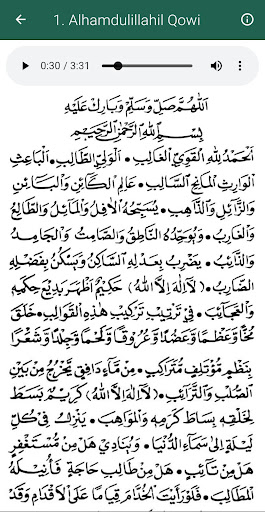 1. Alhamdulillahil Qowi
0:30 / 3:31
اَللّٰهُمَّ صَلِّ وَسَلِّمْ وَبَارِكْ عَلَيْهِ
بِسْمِ اللهِ الرَّحْمٰنِ الرَّحِيْمِ
اَلْحَمْدُ لِلّٰهِ الْقَوِيِّ الْغَالِبِ۰ اَلْوَلِيِّ الطَّالِبِ۰ اَلْبَاعِثِ
الْوَارِثِ الْمَانِحِ السَّالِبِ۰ عَالِمِ الْكَائِنِ وَالْبَائِنِ
وَالزَّائِلِ وَالذَّاهِبِ۰ يُسَبِّحُهُ الْاٰفِلُ وَالْمَائِلُ وَالطَّالِعُ
وَالْغَارِبُ۰ وَيُوَحِّدُهُ النَّاطِقُ وَالصَّامِتُ وَالْجَامِدُ
وَالذَّائِبُ۰ يَضْرِبُ بِعَدْلِهِ السَّاكِنُ وَيَسْكُنُ بِفَضْلِهِ
الضَّارِبُ۰ (لَآاِلٰهَ اِلَّا اللهُ) حَكِيْمٌ اَظْهَرَ بَدِيْعَ حِكَمِهِ
وَالْعَجَائِبَ۰ فِيْ تَرْتِيْبِ تَرْكِيْبِ هٰذِهِ الْقَوَالِبِ۰ خَلَقَ
مُخًّا وَعَظْمًا وَعَضُدًا وَعُرُوْقًا وَلَحْمًا وَجِلْدًا وَشَعْرًا
بِنَظْمٍ مُؤْتَلِفٍ مُتَرَاكِبٍ۰ مِنْ مَاءٍ دَافِقٍ يَخْرُجُ مِنْ بَيْنِ
الصُّلْبِ وَالتَّرَائِبِ۰ (لَآاِلٰهَ اِلَّا اللهُ) كَرِيْمٌ بَسَطَ
لِخَلْقِهِ بِسَاطَ كَرَمِهِ وَالْمَوَاهِبِ۰ يَنْزِلُ فِيْ كُلِّ
لَيْلَةٍ اِلٰى سَمَاءِ الدُّنْيَا۰ وَيُنَادِيْ هَلْ مِنْ مُسْتَغْفِرٍ
هَلْ مِنْ تَائِبٍ۰ هَلْ مِنْ طَالِبِ حَاجَةٍ فَاُنِيْلُهُ
الْمَطَالِبَ۰ فَلَوْ رَاَيْتَ الْخُدَّامَ قِيَامًا عَلَى الْاَقْدَامِ وَقَدْ